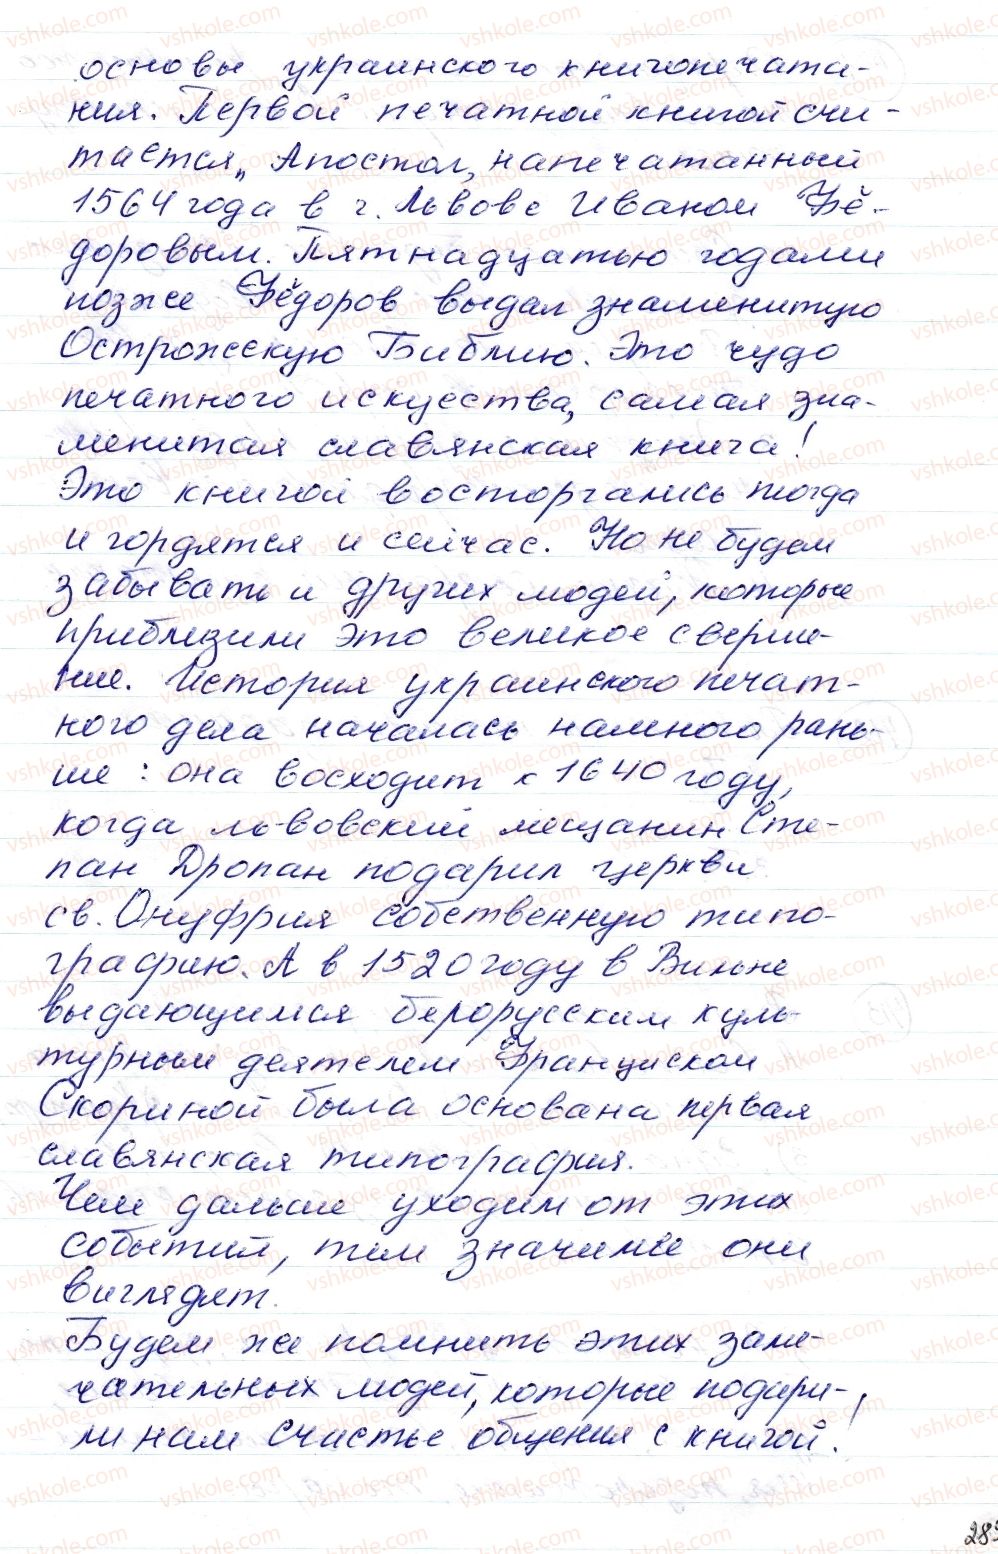 основы украинского книгопечата-
ния. Первой печатной книгой счи-
тается „Апостол„ напечатанный
1564 года в г. Львове Иваном Фё-
доровым. Пятнадцатью годами
позже Фёдоров выдал знаменитую
Острожскую Библию. Это чудо
печатного искуества, самая зна-
менитая славянская книга!
Это книгой восторгались тогда
и гордятся и сейчас. Но не будем
забывать и других людей, которые
приблизили это великое сверше-
ние. История украинского печат-
ного дела началась намного рань-
ше: она восходит к 1640 году,
когда львовский мещанин Сте-
пан Дропан подарил церкви
св. Онуфрия собственную типо-
графию. А в 1520 году в Вильне
выдающимся белорусским куль-
турным деятелем Франциском
Скориной была основана первая
славянская типография.
Чем дальше уходим от этих
событий, тем значимее они
виглядят.
Будем же помнить этих заме-
чательных людей, которые подари-
ли нам счастье общения с книгой!